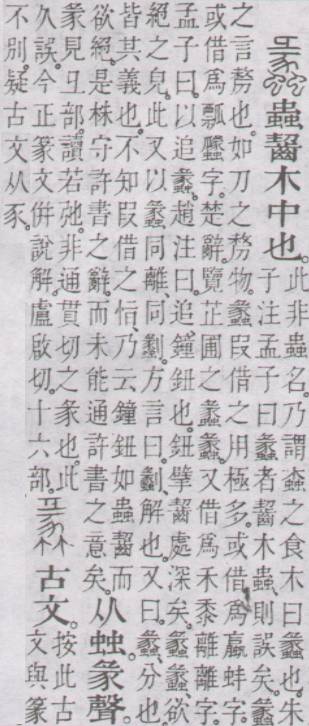 蟲齧木中也。
此非蟲名。乃謂螙之食木曰蠡也。朱
子注孟子曰蠡者齧木蟲。則誤矣。蠡
之言剺也。如刀之剺物。蠡叚借之用極多。或借爲蠃蚌字。
或借爲瓢㼖字。楚辭。覽芷圃之蠡蠡。又借爲禾黍離離字。
孟子曰。以追蠡。趙注曰。追鍾鈕也。鈕擘齧處深矣。蠡蠡欲
絕之皃。此又以蠡同離、同劙。方言曰。劙、解也。又曰。蠡、分也。
皆其義也。不知叚借之恉。乃云鐘鈕如蟲齧而
欲絕。是株守許書之辭。而未能通許書之意矣。
从䖵彖聲。
彖見彑部。讀若弛。非通貫切之彖也。此
久誤。今正篆文併說解盧啟切。十六部。
古文。
按此古
文與篆
不別。疑古文从豕。